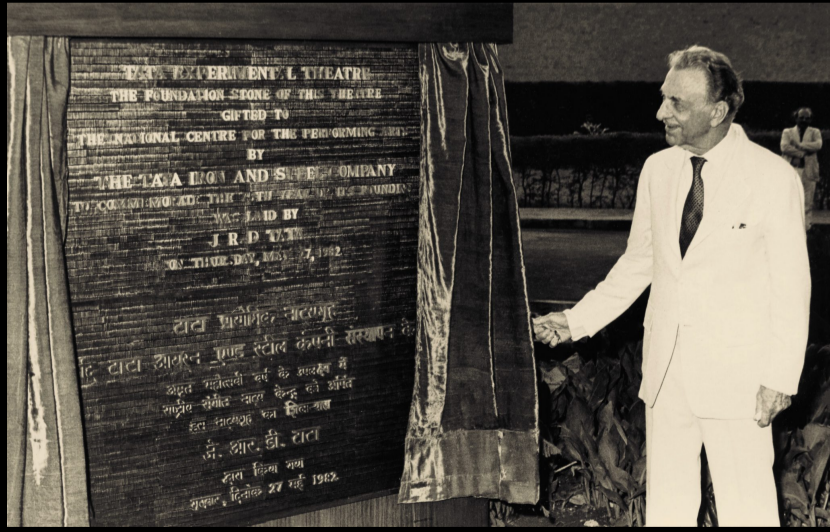 TATA EXPERIMENTAL THEATRE
THE FOUNDATION STONE OF THIS THEATRE
GIFTED TO
THE NATIONAL CENTRE FOR THE PERFORMING ARTS
BY
THE TATA IRON AND STEEL COMPANY
TO COMMEMORATE THE YEAR OF ITS FOUNDING
WAS LAID BY
J R D TATA
ON THURSDAY, MAY 27, 1982
टाटा प्रायोगिक नाट्यगृह
दि टाटा आयरन एण्ड स्टील कंपनी संस्थापन के
वर्ष के उपलक्ष्य में
राष्ट्रीय संगीत नाट्य केन्द्र को अर्पित
इस नाट्यगृह का शिलान्यास
जे. आर. डी. टाटा
द्वारा किया गया
गुरूवार, दिनांक 27 मई 1982